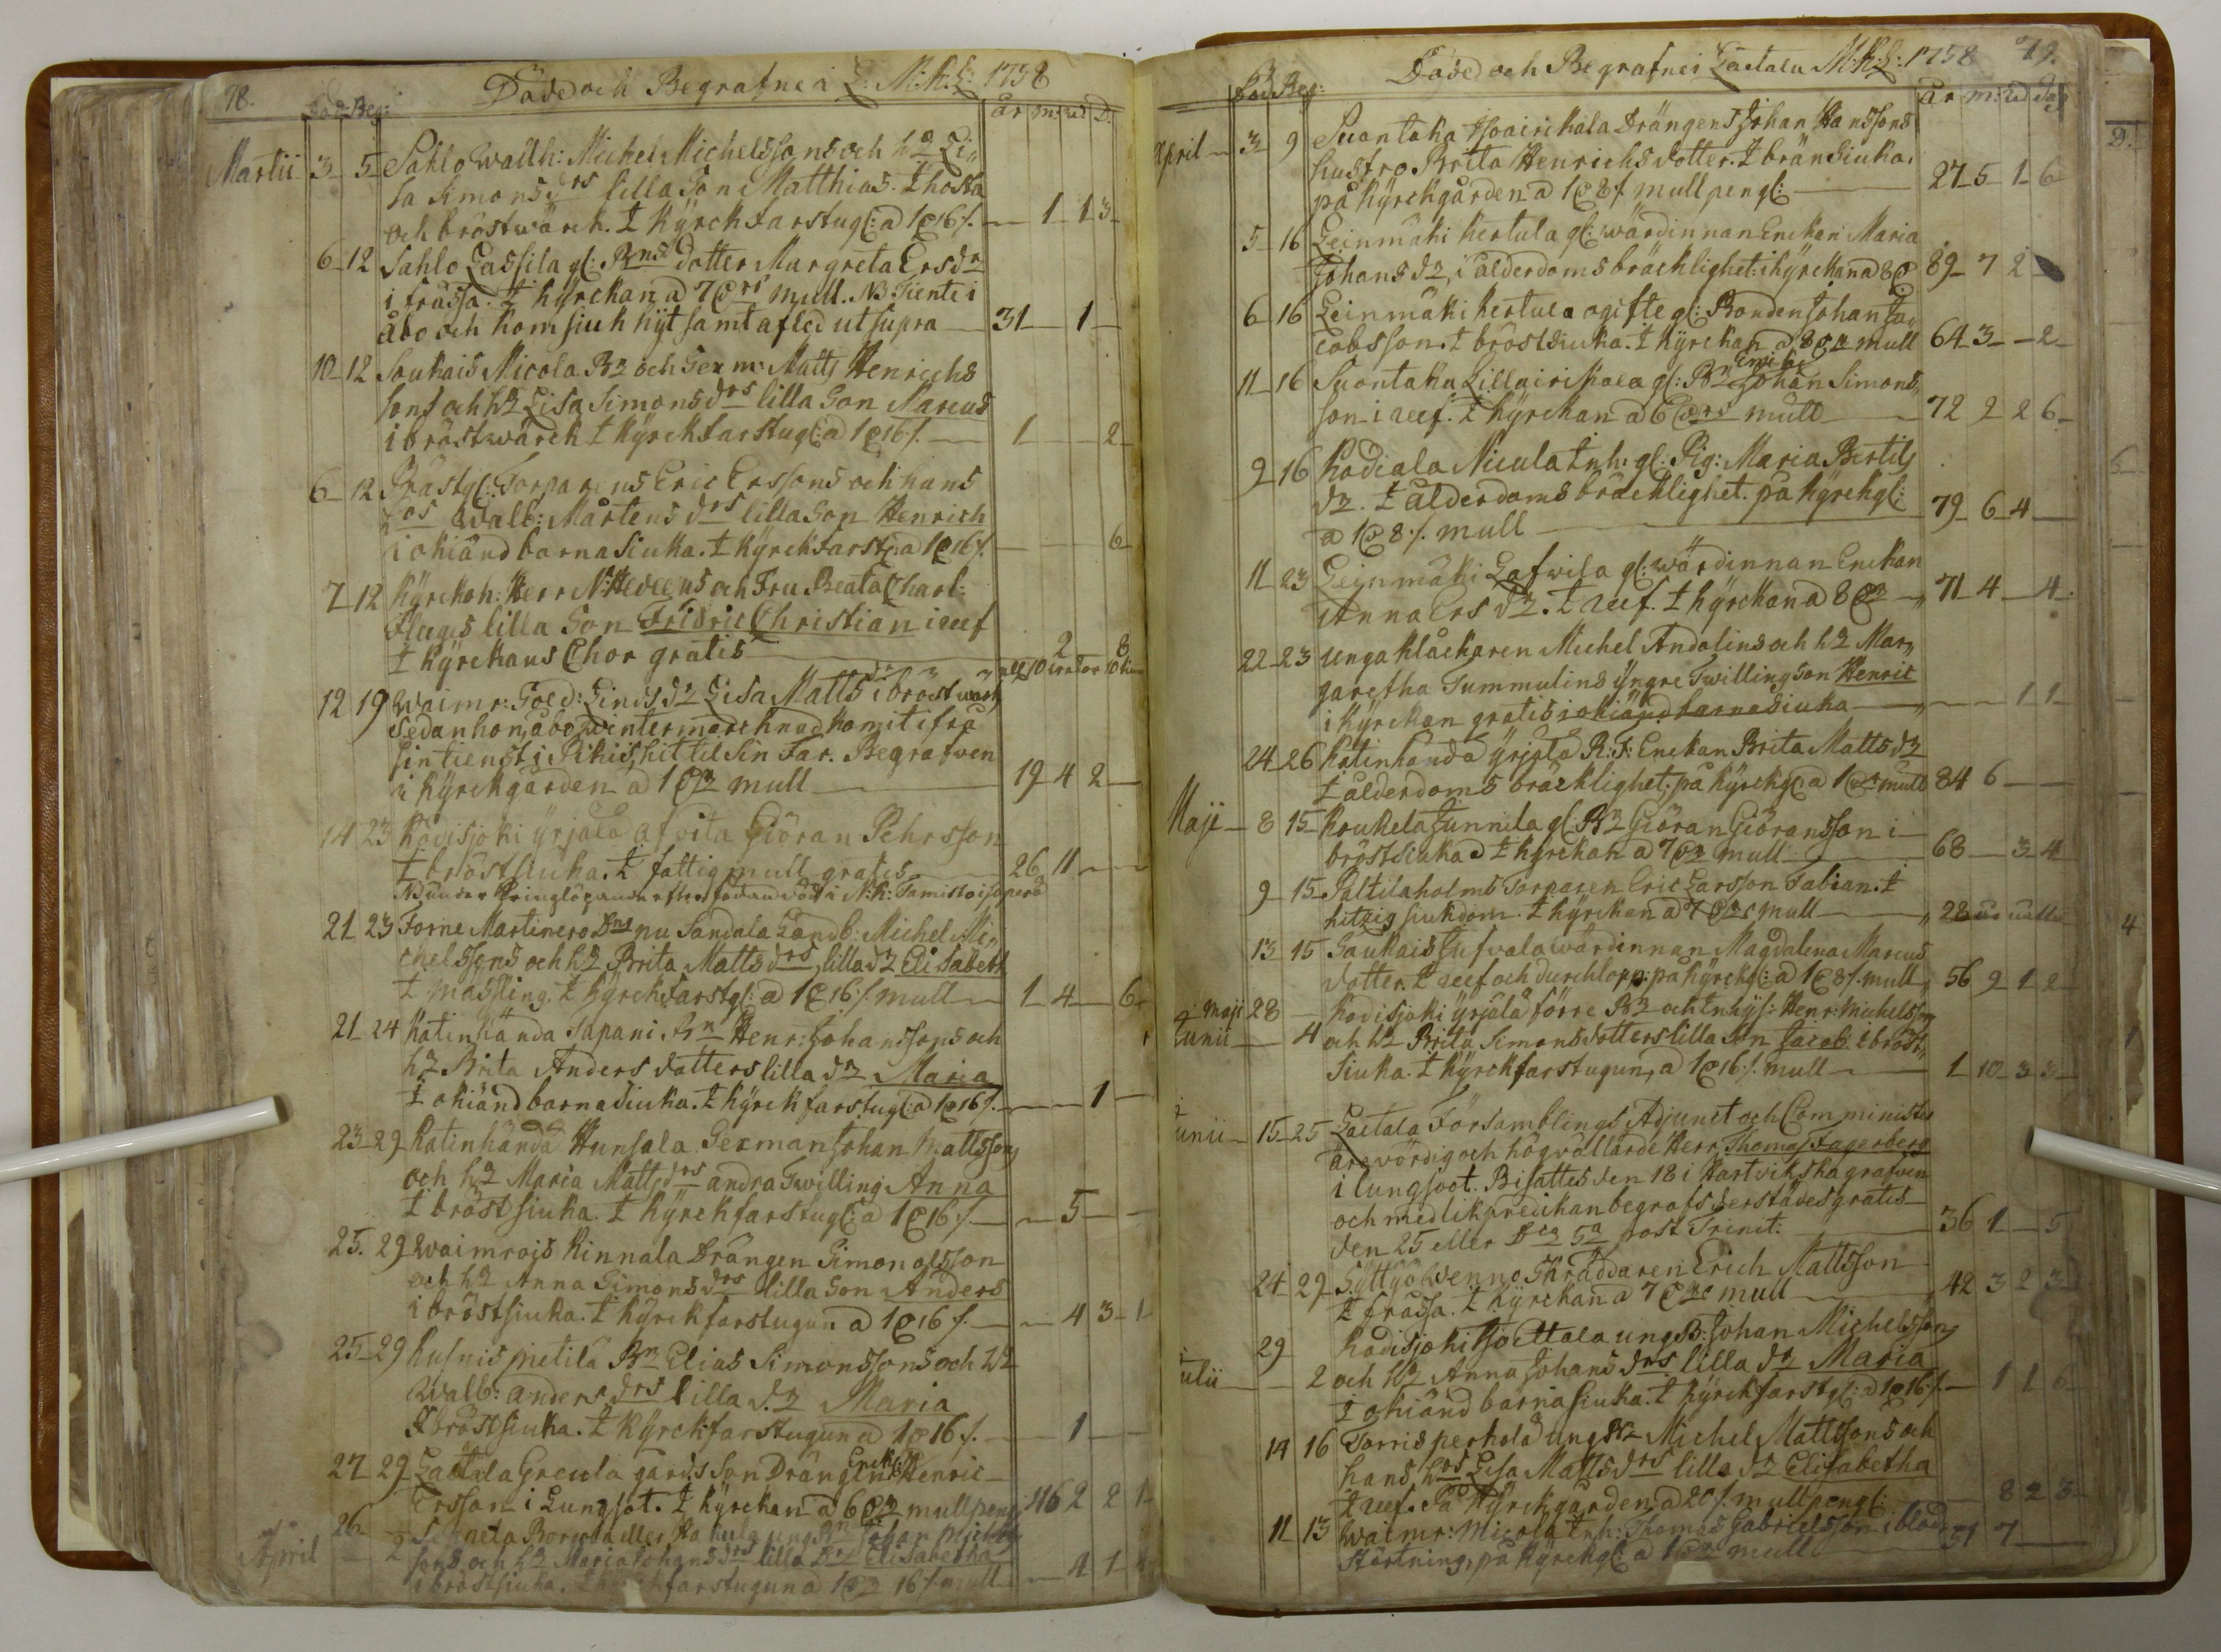 78.
Döde och Begrafne i L: M:k:S: 1758
Död Beg: år m: w: D.
Martii 3 5 Sahlo Wallh: Michel Michelssons och h2 Li„
sa Simons drs lilla Son Matthias. I hosta
och bröstwärk. I Kyrckfarstug: a 1 16/. 1 1 3
6 12 Sahlo Lassila gl: Bns dotter Margreta Ersdr
i frässa. I kyrckan a 7 mull. NB Tiente i
åbo och kom siuk hyt samt afled ut supra 31 1
10 12 Soukais Nicola Bz och Sexm: Matts Henrichs
sons och h2 Lisa Simons drs lilla Son Marcus
i bröstwärck I kyrckfarstug: a 1 16/. 1 2
6 12 Prästgl: Torparens Eric Erssons och hans
hos Walb: Mårtens drs lilla Son Henrich
i okiänd barnasiuka. I kyrckfarst: a 1 16/. 6
7 12 Kyrckoh: Herr N: Hedeens och Fru Beata Charl:
Fleeges lilla Son Fridric Christian i reef
I Kyrckans Chor gratis 2 8
12 19 Waimr: Told: Linds dr Lisa Matts dr i bröstwärk
sedan hon åbo wintermarcknad komit ifrå
sin tienst i Pikis hit til sin Far. Begrafwen
i kyrckgården a 1 mull 19 4 2
14 23 Kodisjoki yrjälä afsita Giöran Pehrsson
I bröstsiuka. I fattigmull gratis 26 11
21 23 Forne Martinero Bns nu Sandala Landb: Michel Mi„
chelssons och h2 Brita Matts drs lilla d2 Elisabeth
I Massling. I kyrckfarstgl: a 1 16/. mull 1 4 6
21 24 Katinhända Tapani Bn Henr: Johanssons och
h2 Brita Anders dotters lilla d2 Maria
I okiänd barnasiuka. I kyrckfarstugl: a 1 16/. 1
23 29 Katinhända Hunsala Sexman Johan Mattssons
och h2 Maria Matts drs andra Twilling Anna
I bröstsiuka. I kyrckfarstugl: a 1 16/. 5
25. 29 Waimrois Kinnala Drängen Simon olsson
och h2 Anna Simons drs lilla Son Anders
i bröstsiuka. I kyrckfarstugun a 1 16/. 4 3 1
25 29 Kusnis pietilä Bn Elias Simonssons och h2
Walb: anders drs lilla d2 Maria
I bröstsiuka. I Kyrckfarstugun a 1 16/. 1
27 29 Laitala Greula gårds Son Drängen Enckl: Henric
Ersson i Lungsot. I kyrckan a 6 mullpeng: 46 2 2 1
26
April 2 Johan Michels
sons och h2 Maria Johans drs lilla dr Elisabetha
i bröstsiuka. I kyrckfarstugun a 1 16/. mull 4 1
79.
Döde och Begrafne i Laitala M:k:S: 1758
Död Beg: år m: w: Dag
April 3 9 Suontaka Isoirikala Drängens Johan Hanssons
hustro Brita Henrichs dotter. I brånsiuka.
på Kyrckgården a 1 8/. mullpengl: 27 5 1 6
5 16 Leinmäki Kertula gl: wärdinnan Enckan Maria
Johans d2, i ålderdoms bräcklighet: i kyrckan a 8 89 7 2
6 16 Leinmäki Kertula ogifte gl: Bonden Johan Ja„
cobsson. I bröstsiuka. I kyrckan a 8 mull 64 3 2
11 16 Suontaka Lillairikala gl: Bn Enckl: Johan Simons„
son i reef. I kyrckan a 6 mull 72 2 2 6
9 16 Kodiala Nicula Inh: gl: Pig: Maria Bertils
d2. I ålderdoms bräcklighet. på kyrckgl:
a 1 8/. mull 79 6 4
11 23 Leinmäki Lafwila gl: wärdinnan Enckan
Anna Ers d2. I reef. I kyrckan a 8 71 4 4
22 23 Unga klåckaren Michel Andolins och h2 Mar„
garetha Tummulins yngre Twilling son Henric
i kyrckan gratis i okiänd barnasiuka 1 1
24 26 Katinhända yrjälä R:F: Enckan Brita Matts d2
I ålderdoms bräcklighet; på kyrckgl: a 1 mull 84 6
Maji 8 15 Koukela Junnila gl: Bn Giöran Giöransson i
bröstsiuka I kyrckan a 7 mull 68 3 4
9 15 Paltila holms Torparen Eric Larsson Fabian. I
hitzig siukdom. I kyrckan a 7 mull 28
13 15 Saukais Tufvala wärdinnan Magdalena Marcus
dotter. I reef och durchlopp: på kyrckgl: a 1 8/. mull 56 9 1 2
Maji 28 Kodisjoki yrjälä förre B2 och Inhys: Henr: Michelssons
Iunii 4 och h2 Brita Simons dotters lilla Son Jacob i bröst„
siuka. I kyrckfarstugun, a 1 16/. mull 1 10 3 3
Iunii 15 25 Laitala Församblings Adjunct och Comminister
ärewördig och högwällärde Herr Thomas Fagerberg
i lungsoot. Bisattes den 18 i Hartvikska grafwen
och med likpredikan begrofs derstädes gratis
den 25 eller Dca 5a post Trinit: 36 1 5
24 29 Syttyö Wenno Skräddaren Erich Mattsson
I frässa. I kyrckan a 7 mull 42 3 2 3
29 Kodisjoki Isoettala ung B: Johan Michelssons
Iulii 2 och h2 Anna Johans drs lilla d2 Maria
I okiänd barnasiuka. I kyrckfarstgl: a 1 16/. 1 1 6
14 16 Torris perhola ung B2 Michel Mattssons och
hans hos Lisa Matts drs lilla d2 Elisabetha
I reef. På kyrckgården a 20/. mullpengl: 8 2 3
11 13 Waimr: Micola Inh: Thomas Gabrielsson i blod
störtning, på kyrckgl: a 1 mull 51 7